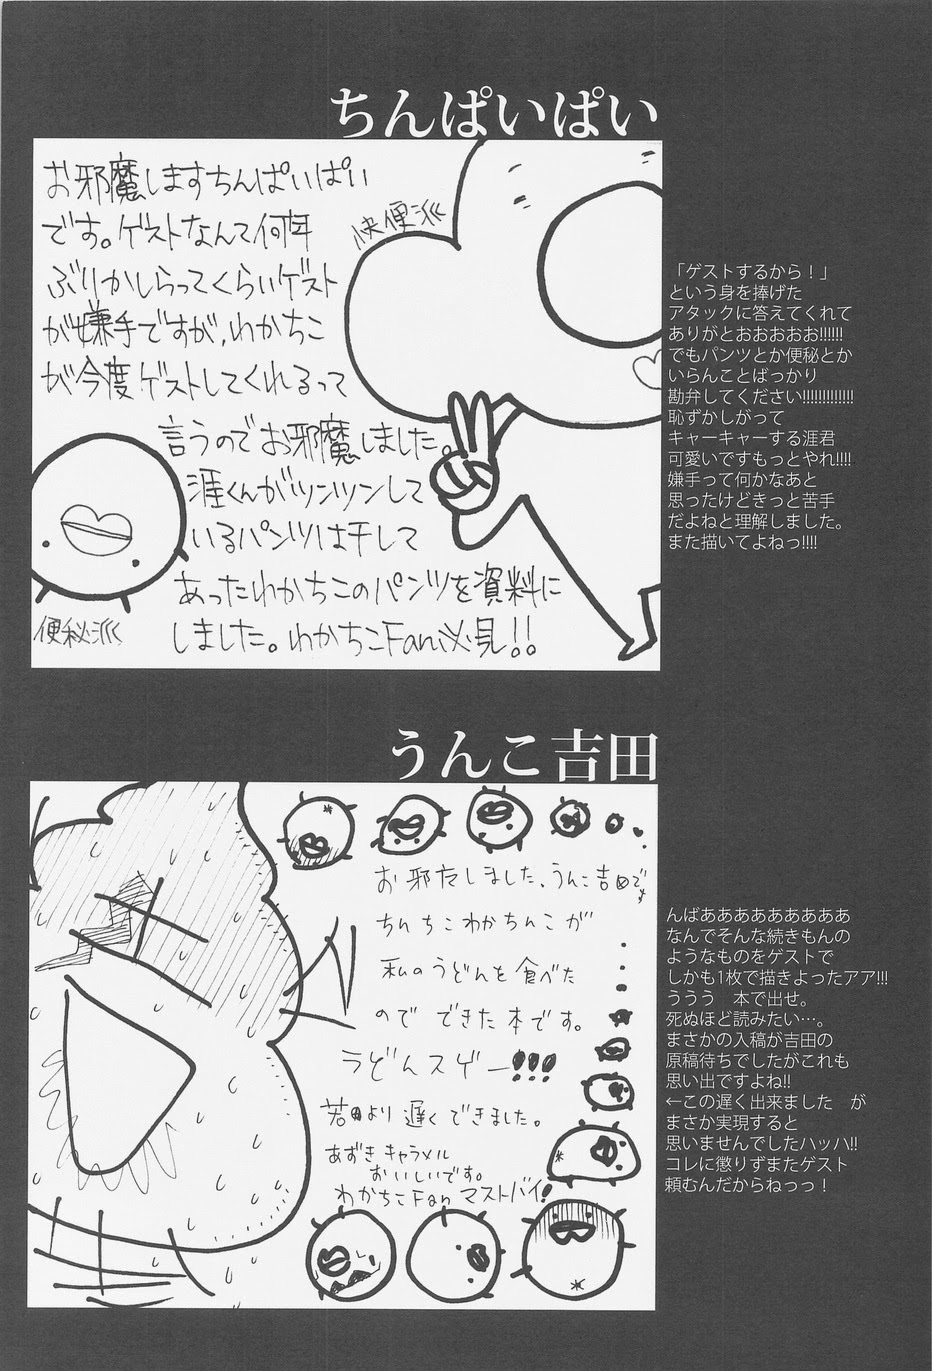 ちんぱいぱい
お邪魔しますちんぱいぱい
です。ゲストなんて何年
ぶりかしらってくらいゲスト
が嫌手ですが、わかちこ
が今度ゲストしてくれるって
言うのでお邪魔しました。
涯くんがツンツンして
いるパンツは干して
あったわかちこのパンツを資料に
しました。わかちこFan必見!!
快便派
便秘派
「ゲストするから！」
という身を捧げた
アタックに答えてくれて
ありがとおおおおお!!!!!!
でもパンツとか便秘とか
いらんことばっかり
勘弁してください!!!!!!!!!!!!!
恥ずかしがって
キャーキャーする涯君
可愛いですもっとやれ!!!!
嫌手って何かなあと
思ったけどきっと苦手
だよねと理解しました。
また描いてよねっ!!!!
うんこ吉田
お邪魔しました、うんこ吉田です
ちんちこわかちんこが
私のうどんを食べた
のでできた本です。
うどんスゲー!!!
若田より遅くできました。
あずきキャラメル
おいしいです。
わかちこFanマストバイ!
んばあああああああああ
なんでそんな続きもんの
ようなものをゲストで
しかも1枚で描きよったアア!!!
ううう　本で出せ。
死ぬほど読みたい…。
まさかの入稿が吉田の
原稿待ちでしたがこれも
思い出ですよね!!
←この遅く出来ました　が
まさか実現すると
思いませんでしたハッハ!!
コレに懲りずまたゲスト
頼むんだからねっっ！